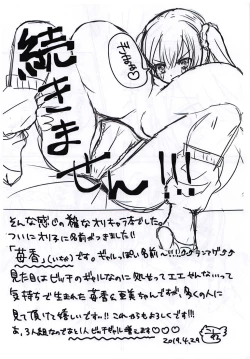 続きません!!!
そんな感じの雑なオリキャラ本でした。
ついにオリ子に名前がつきました!!
「苺香」(いちか)です。ギャルっぽい名前〜!!
見た目はビッチのギャルなのに処女ってエエやんいって
気持ちで生まれた苺香と亜美ちゃんですが、多くの人に
見て頂けて嬉しいです!! これからもよろしくです!!!
あ、3人組なのであと1人ビッチギャル増えます♡♡♡♡
2019.4.29